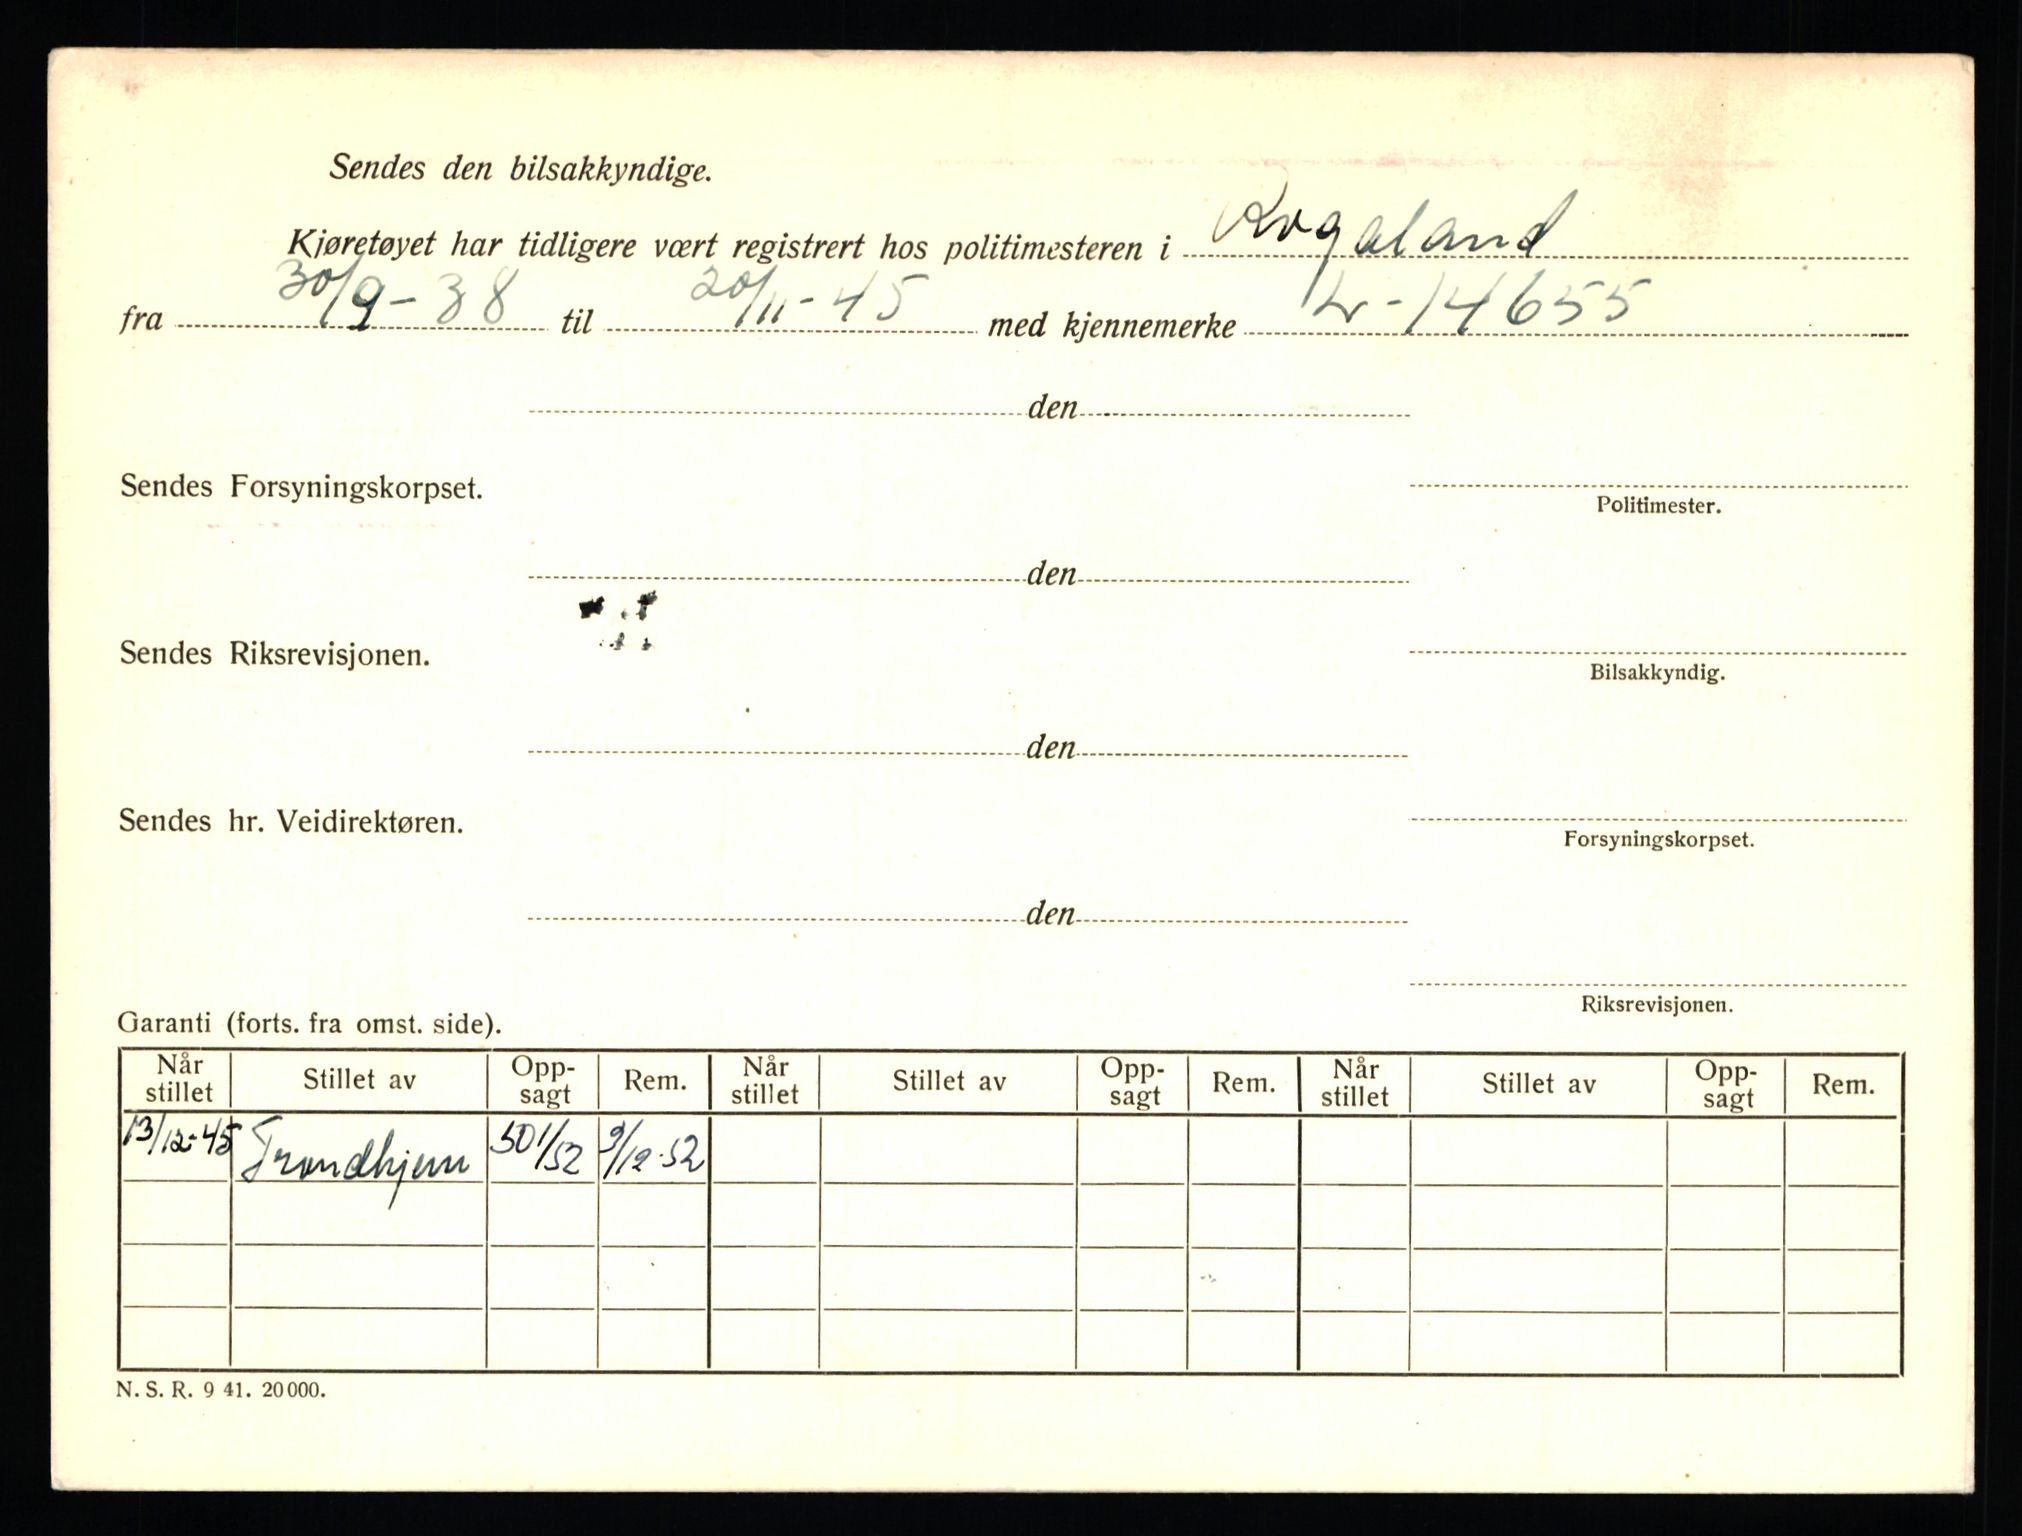 Sendes den bilsakkyndige.
Kjøretøyet har tidligere vært registrert hos politimesteren i Rogaland
fra 30/9-38 til 20/11-45 med kjennemerke L-14655
den
Sendes Forsyningskorpset.
Politimester.
den
Sendes Riksrevisjonen.
Bilsakkyndig.
den
Sendes hr. Veidirektøren.
Forsyningskorpset.
den
Riksrevisjonen.
Garanti (forts. fra omst. side).
Når stillet Stillet av Opp-sagt Rem. Når stillet Stillet av Opp-sagt Rem. Når stillet Stillet av Opp-sagt Rem.
13/12-45 Trondhjem 501/52 9/12-52
N. S. R. 9 41. 20 000.